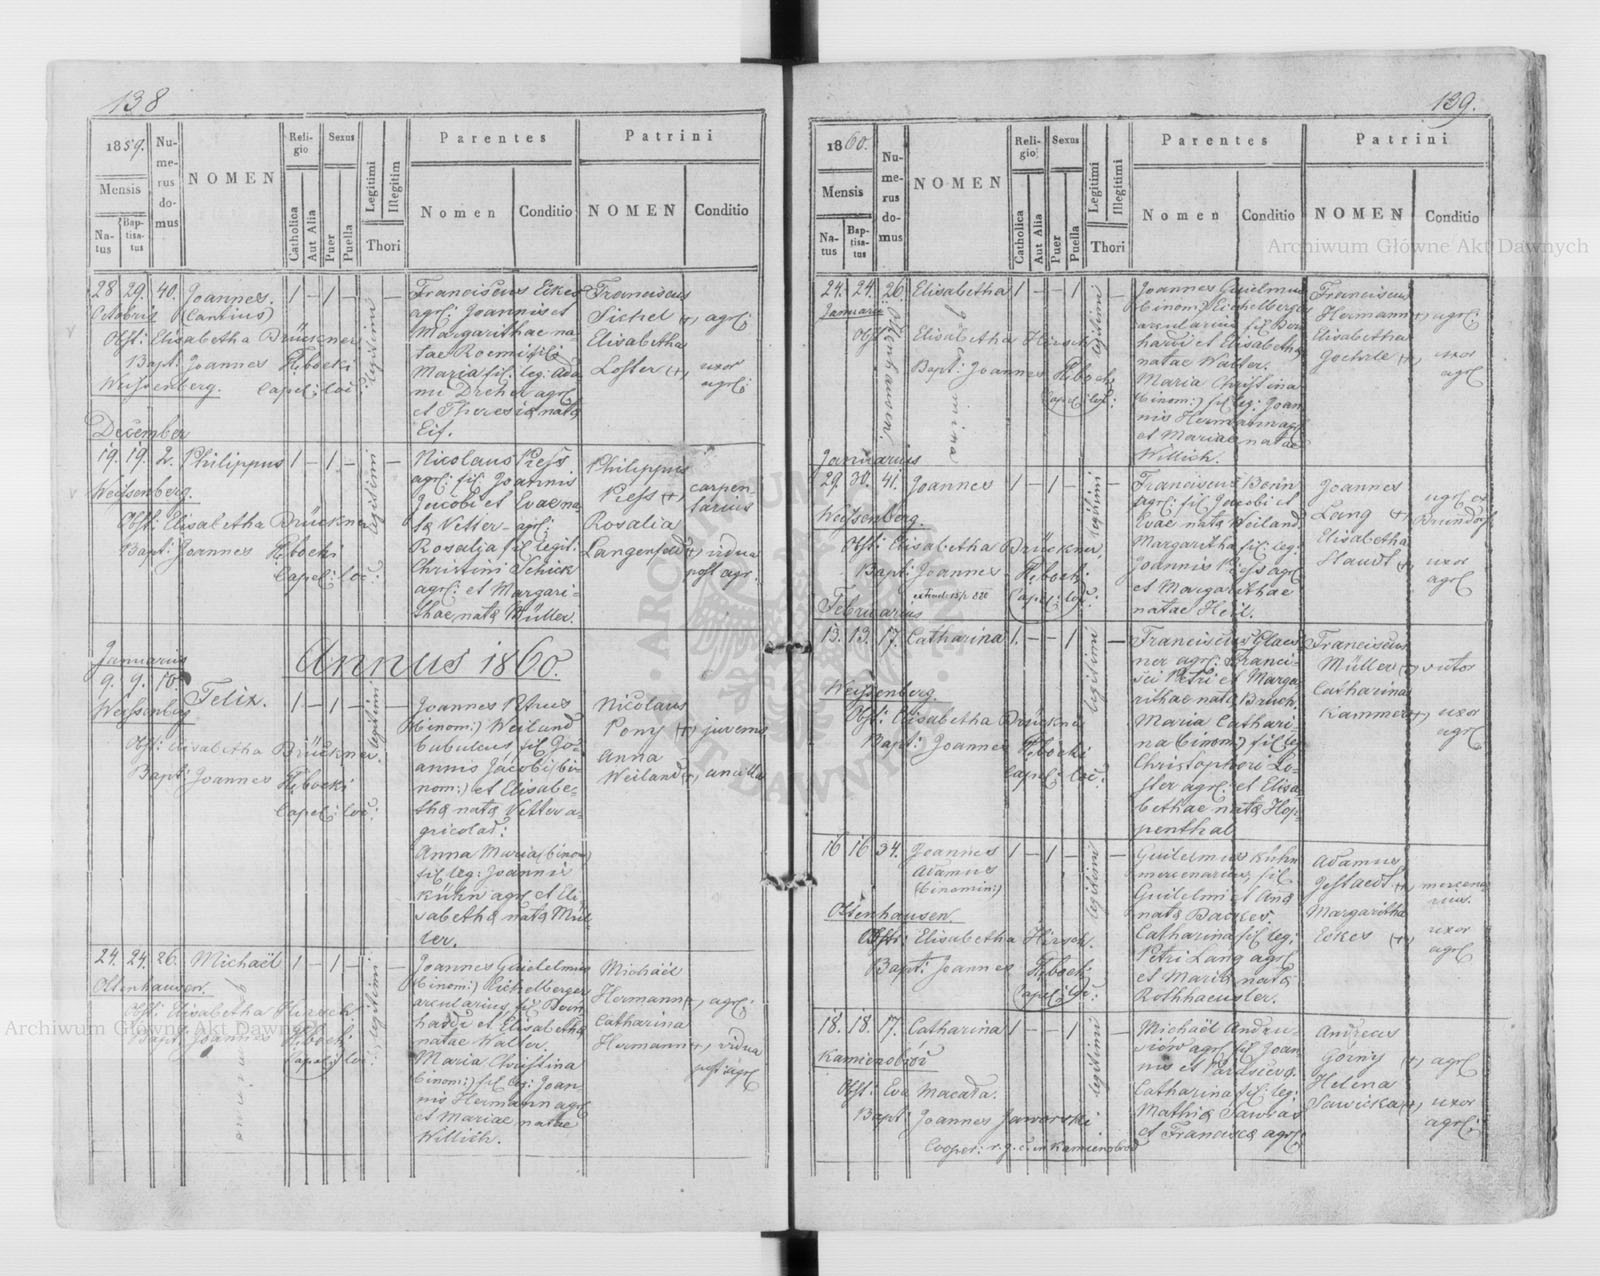 138
1859.
Mensis
Natus
Baptisatus
Numerus domus
NOMEN
Religio
Catholica
Aut Alia
Sexus
Puer
Puella
Legitimi
Illegitim
Thori
Parentes
Nomen
Conditio
Patrini
NOMEN
Conditio
28 29. 40. Joannes. 1 – 1 – –
Octobris (Cantius)
legitimi
Obst: Elisabetha Brückner
Bapt: Joannes
Weissenberg. Capel: loc:
Franciscus Eckes
agrl: Joannis et
Margarithae na
tae Roemi fil:
Maria fil: leg: Ada
mi Dreher agrl
et Theresiae natae
Eis.
Franciscus
Sichel (+) agrl:
Elisabetha
Loster (+) uxor
agrl:
December
19. 19. 2. Philippus 1 – 1 – –
Weissenberg.
legitimi
Obst: Elisabetha Brückner
Bapt: Joannes
Capel: loc:
Nicolaus Piess
agrl: fil: Joannis
Jacobi et Evae na
tae Vetter agrl:
Rosalia fil: legit:
Christini Schick
agrl: et Margari-
thae natae Müller.
Philippus
Piess (+) carpen-
tarius
Rosalia
Langenfeld (+) vidua
post agr.
Annus 1860.
Januarius
9. 9. 10. Felix. 1 – 1 – –
Weissenberg
legitimi
Obst: Elisabetha Brückner.
Bapt: Joannes
Capel: loc:
Joannes Petrus
(binom:) Weiland
bubulcus fil: Jo-
annis Jacobi (bi-
nom:) et Elisabe-
thae natae Vetter a-
gricolar:
Anna Maria (binom)
fil: leg: Joannis
Kühn agrl et Eli-
sabethae natae Mül-
ler.
Nicolaus
Pony (+) juvenis
Anna
Weiland (+) ancilla
24. 24. 26. Michaël 1 – 1 – –
Ottenhausen.
gemina
legitimi
Obst: Elisabetha Hirsch
Bapt: Joannes
Capel: loc:
Joannes Guielmus
(binom:) Eichelberger
arcularius fil: Bern
hardi et Elisabethae
natae Walter.
Maria Christina
(binom:) fil: leg: Joan-
nis Hermann agrl
et Mariae natae
Willich.
Michaël
Hermann (+) agrl:
Catharina
Hermann (+) vidua
post agrl
139.
1860.
Mensis
Natus
Baptisatus
Numerus domus
NOMEN
Religio
Catholica
Aut Alia
Sexus
Puer
Puella
Legitimi
Illegitimi
Thori
Parentes
Nomen
Conditio
Patrini
NOMEN
Conditio
24. 24. 26. Elisabetha 1 – – 1 –
Januarii
Ottenhausen.
gemina
legitimi
Obst: Elisabetha Hirsch
Bapt: Joannes
Capel: loc:
Joannes Guielmus
(binom:) Eichelberger
arcularius fil: Bern
hardi et Elisabethae
natae Walter.
Maria Christina
(binom:) fil: leg: Joan-
nis Hermann agrl
et Mariae natae
Willich.
Franciscus
Hermann (+) agrl:
Elisabetha
Goetzle (+) uxor
agrl
Januarius
29. 30. 41. Joannes 1 – 1 – –
Weissenberg.
legitimi
Obst: Elisabetha Brückner.
Bapt: Joannes
Capel: loc:
Franciscus Bonn
agrl: fil: Jacobi et
Evae natae Weiland
Margaritha fil: leg:
Joannis Piess agrl
et Margarithae
natae Heil.
Joannes
Lang (+) agrl ex
Brundorf
Elisabetha
Staudt (+) uxor
agrl
Februarius
13. 13. 17. Catharina 1. – – 1 –
Weissenberg
legitimi
Obst: Elisabetha Brückner
Bapt: Joannes
Capel: loc:
Franciscus Glaes
ner agrl: Franci-
sci Petri et Marga
rithae natae Bruch.
Maria Cathari
na (binom:) fil: leg
Christophori Lo-
ster agrl: et Elisa
bethae natae Hop-
penthal
Franciscus
Müller (+) sutor
Catharina
Kammer (+) uxor
agrl
16 16 34. Joannes 1 – 1 – –
Adamus
(binomin:)
Ottenhausen.
legitimi
Obst: Elisabetha Hirsch.
Bapt: Joannes
Capel: loc:
Guilelmus Kühn
mercenarius fil
Guilelmi et Annae
natae Backes.
Catharina fil: leg:
Petri Lang agrl
et Mariae natae
Rothhaeusler.
Adamus
Jestaedt (+) mercena
rius.
Margaritha
Eckes (+) uxor
agrl
18. 18. 17. Catharina 1 – – 1 –
Kamienobród
legitimi
Obst: Eva Macada.
Bapt: Joannes Jaworski
Cooper: r. g. c. in Kamienobród
Michaël Andru-
siów agrl fil: Joan
nis et
Catharina fil: leg:
Mathiae Sawkas
et Franciscae agrl:
Andreas
Górny (+) agrl
Helena
Sawicka (+) uxor
agrl:
Archiwum Główne Akt Dawnych
Archiwum Główne Akt Dawnych